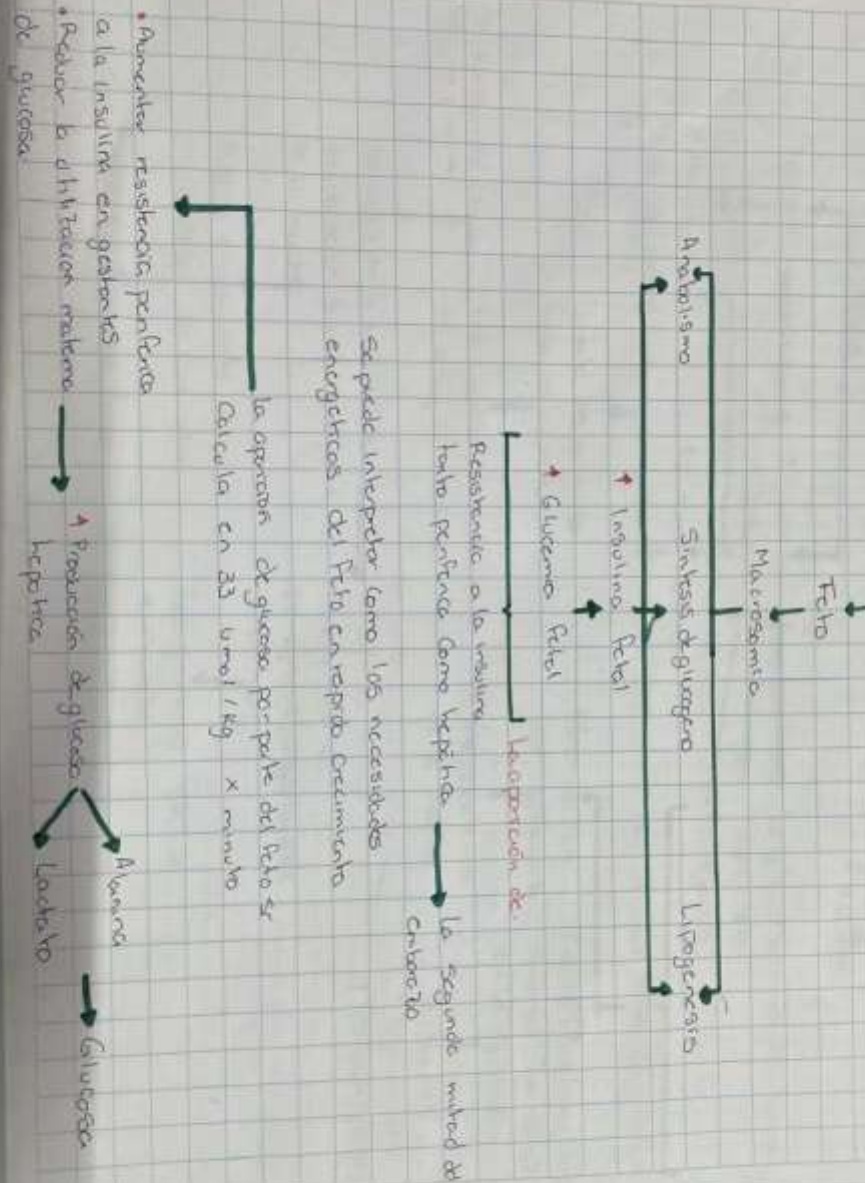 Feto
Macrosomia
Anabolismo
Sintesis de glucogeno
Lipogenesis
↑ Insulina fetal
↑ Glucemia fetal
La aparición de:
Resistencia a la insulina
tanto periferica como hepática
la segunda mitad del
embarazo
Se puede interpretar como las necesidades
energéticas del feto en rapido crecimiento
la aparición de glucosa por parte del feto se
Calcula en 33 umol / Kg x minuto
• Aumentar resistencia periferica
a la insulina en gestantes
• Reducir la utilizacion materna
de glucosa
↑ Producción de glucosa
hepatica
Alanina
Lactato
Glucosa